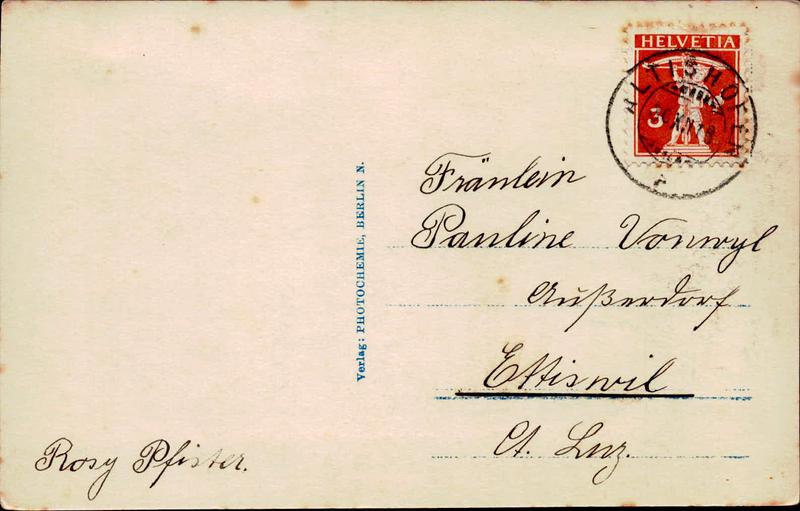 HELVETIA
ALTISHOFEN
3
Fräulein
Pauline Vonwyl
Außerdorf
Ettiswil
Ct. Luz.
Verlag: PHOTOCHEMIE, BERLIN N.
Rosy Pfister.